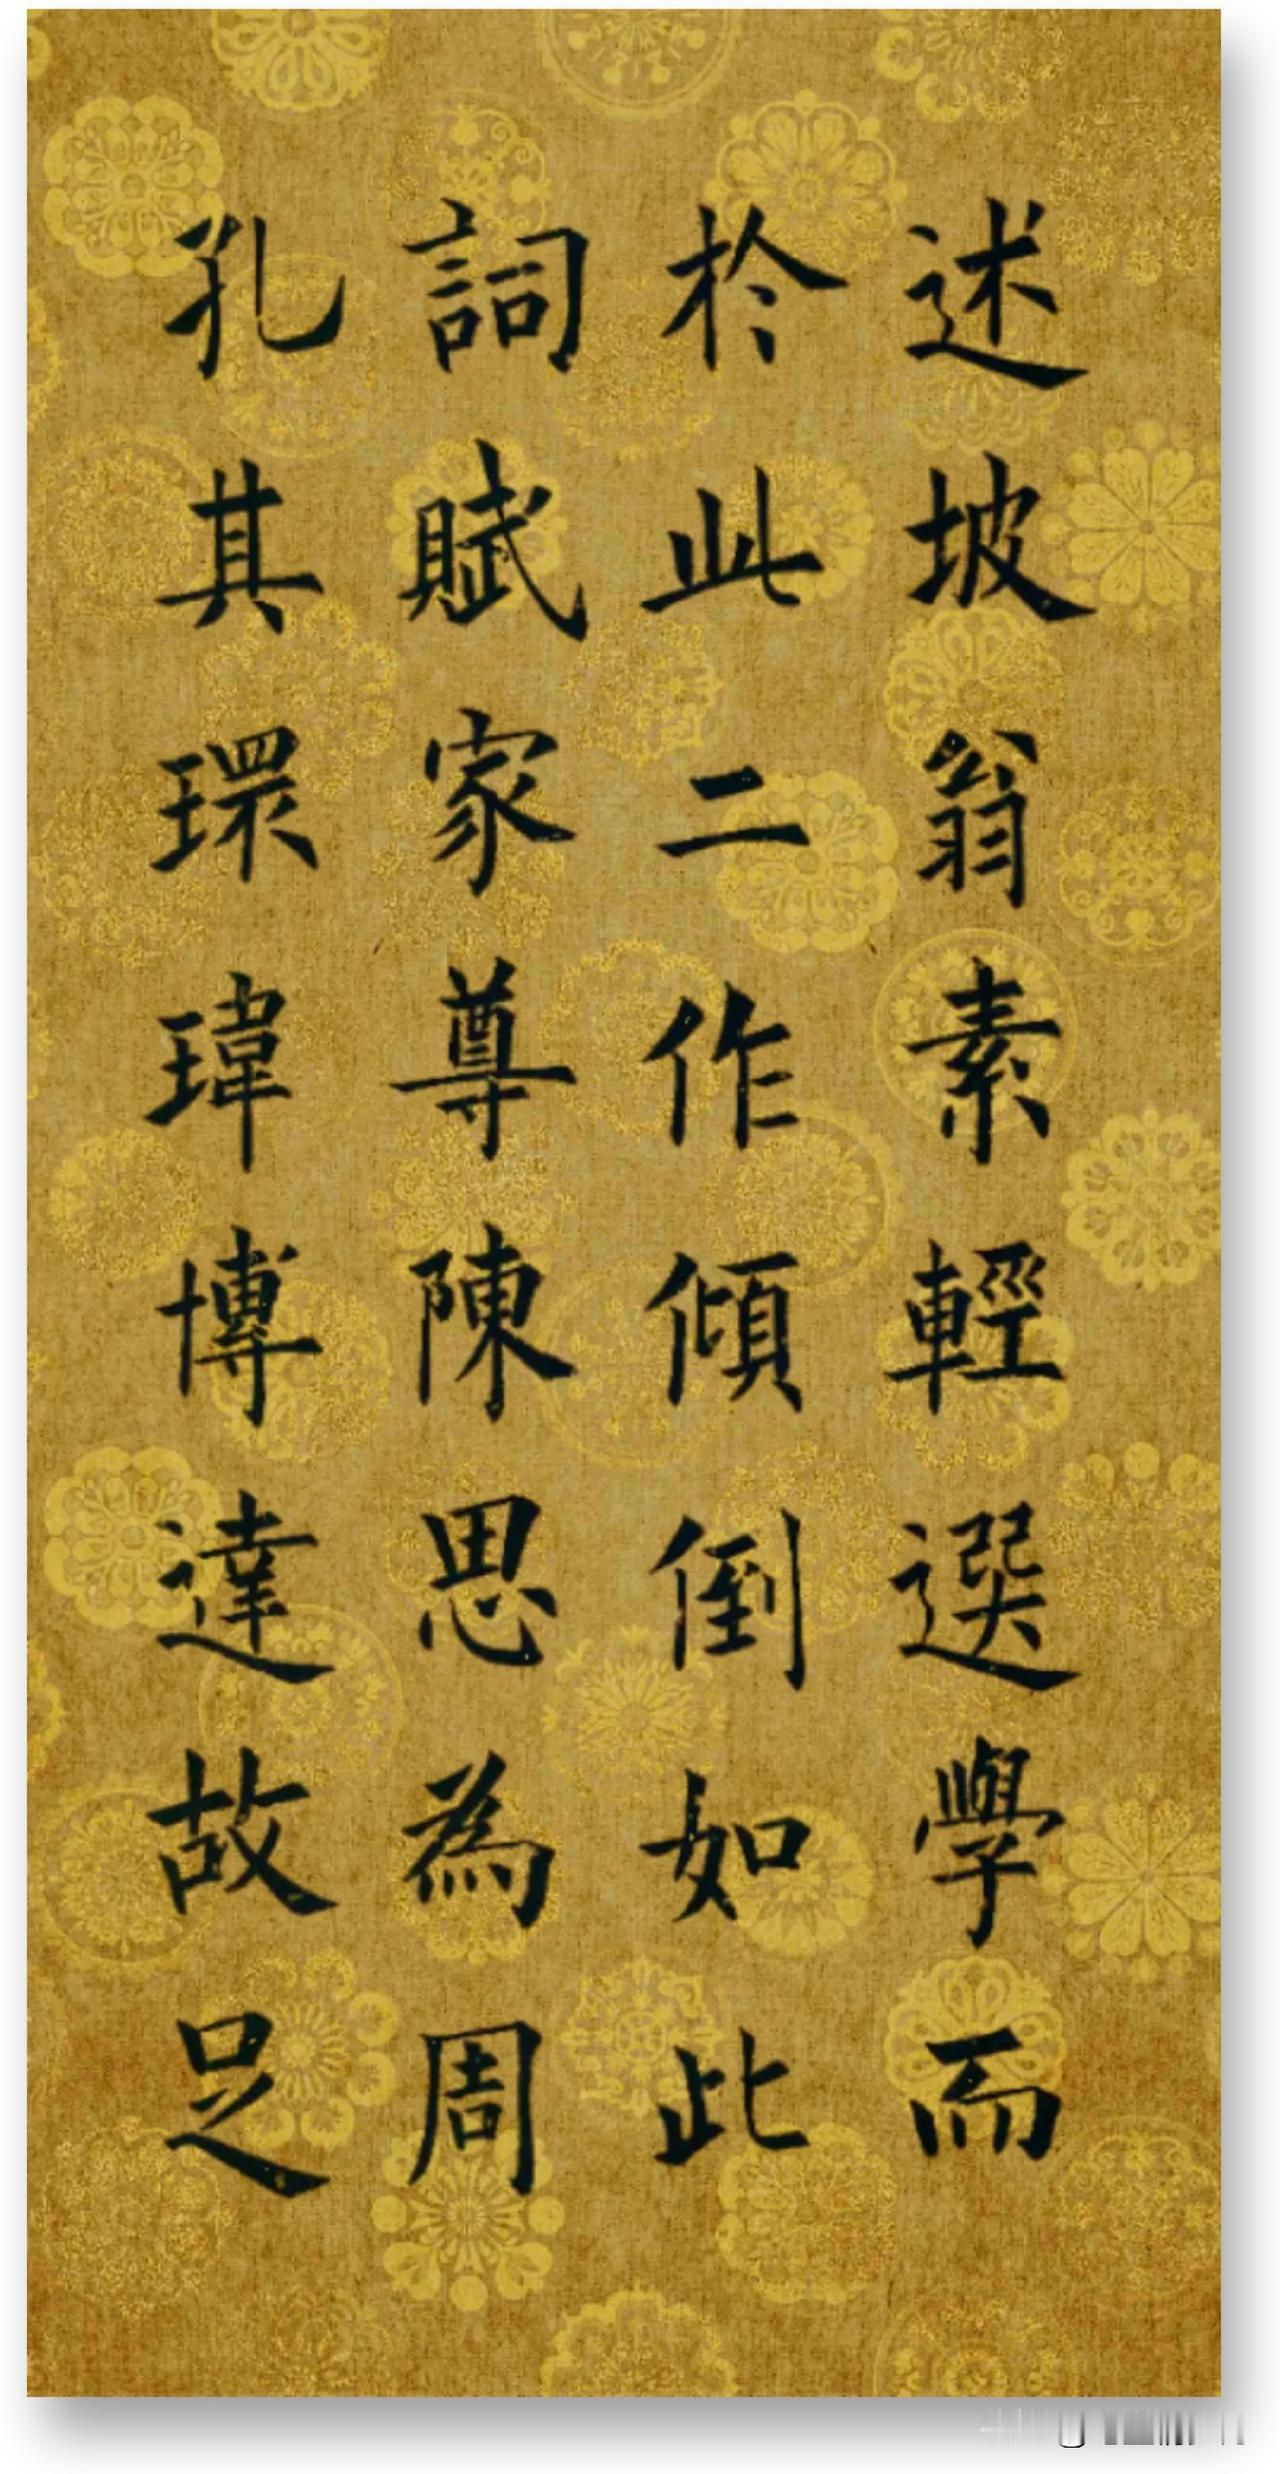 述坡翁素輕選學而
於此二作傾倒如此
詞賦家尊陳思為周
孔其環瑋博達故足